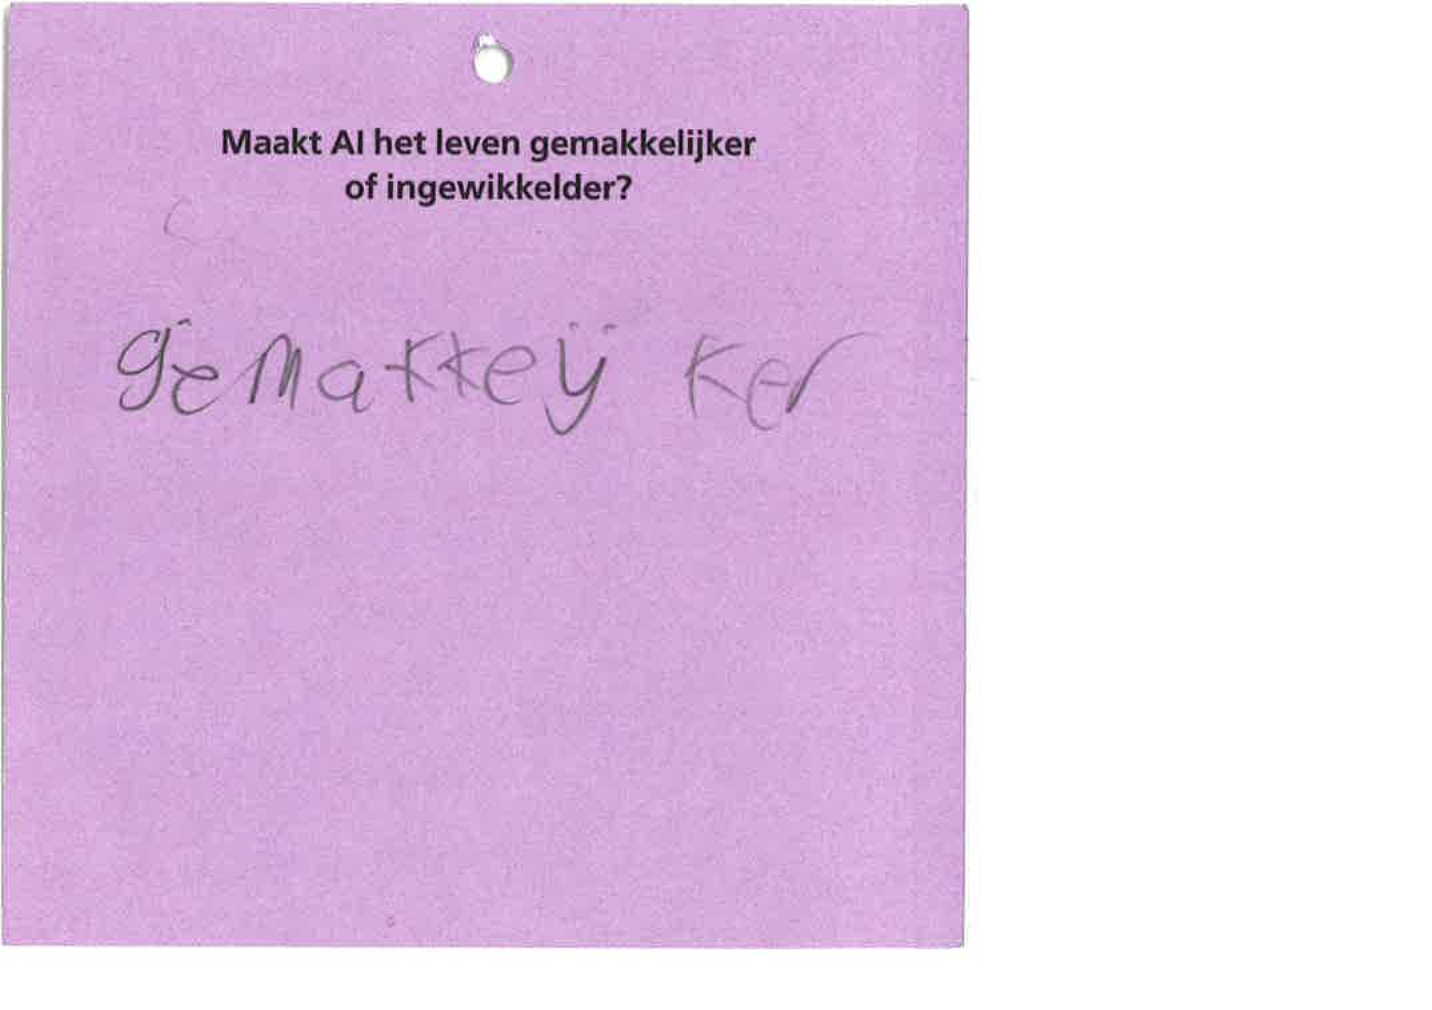 Maakt AI het leven gemakkelijker
of ingewikkelder?
gemakkeij ker